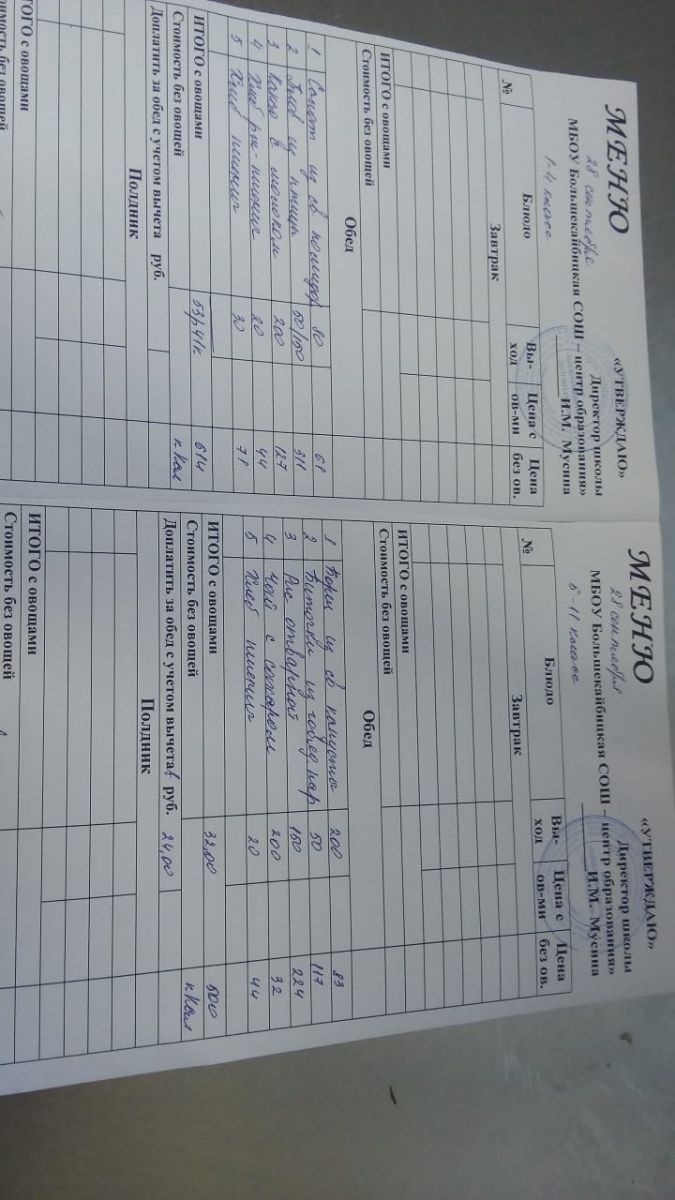 МЕНЮ
«УТВЕРЖДАЮ»
28 сентября
Директор школы
МБОУ Большекайбицкая СОШ – центр образования»
И.М. Мусина
1-4 класс
№ Блюдо Вы-ход Цена с ов-ми Цена без ов.
Завтрак
ИТОГО с овощами
Стоимость без овощей
Обед
1 Салат из св помидор 80 61
2 Плов из птицы 50/150 311
3 Какао с молоком 200 127
4 Хлеб рж-пшенич 20 44
5 Хлеб пшенич 30 71
ИТОГО с овощами 53р41к 614
Стоимость без овощей ккал
Доплатить за обед с учетом вычета руб.
Полдник
ИТОГО с овощами
Стоимость без овощей
МЕНЮ
«УТВЕРЖДАЮ»
28 сентября
Директор школы
МБОУ Большекайбицкая СОШ – центр образования»
И.М. Мусина
5-11 класс
№ Блюдо Вы-ход Цена с ов-ми Цена без ов.
Завтрак
ИТОГО с овощами
Стоимость без овощей
Обед
1 Борщ из св капусты 200 83
2 Биточки из говяд пар 50 117
3 Рис отварной 150 224
4 Чай с сахаром 200 32
5 Хлеб пшенич 20 44
ИТОГО с овощами 32,00 500
Стоимость без овощей ккал
Доплатить за обед с учетом вычета руб. 24,00
Полдник
ИТОГО с овощами
Стоимость без овощей